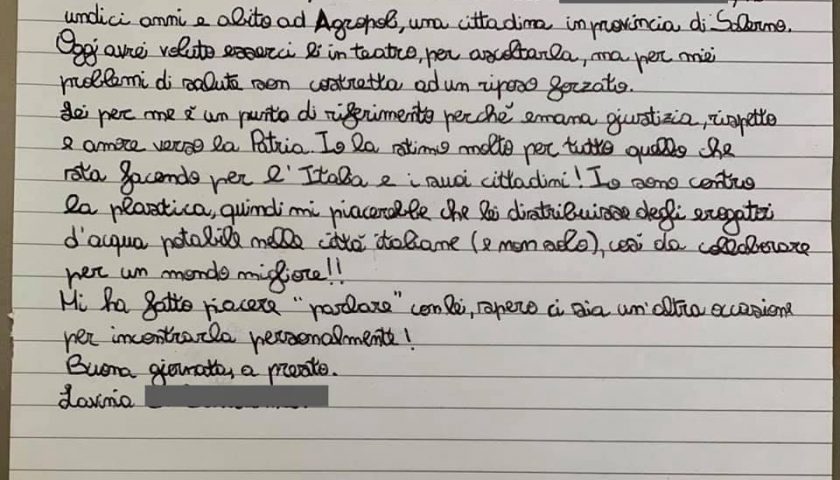 undici anni e abito ad Agropoli, una cittadina in provincia di Salerno.
Oggi avrei voluto esserci lì in teatro, per ascoltarla, ma per miei
problemi di salute son costretta ad un riposo forzato.
Lei per me è un punto di riferimento perché emana giustizia, rispetto
e amore verso la Patria. Io la stimo molto per tutto quello che
sta facendo per l'Italia e i suoi cittadini! Io sono contro
la plastica, quindi mi piacerebbe che lei distribuisse degli erogatori
d'acqua potabile nelle città italiane (e non solo), così da collaborare
per un mondo migliore!!
Mi ha fatto piacere "parlare" con lei, spero ci sia un'altra occasione
per incontrarla personalmente!
Buona giornata, a presto.
Lavinia